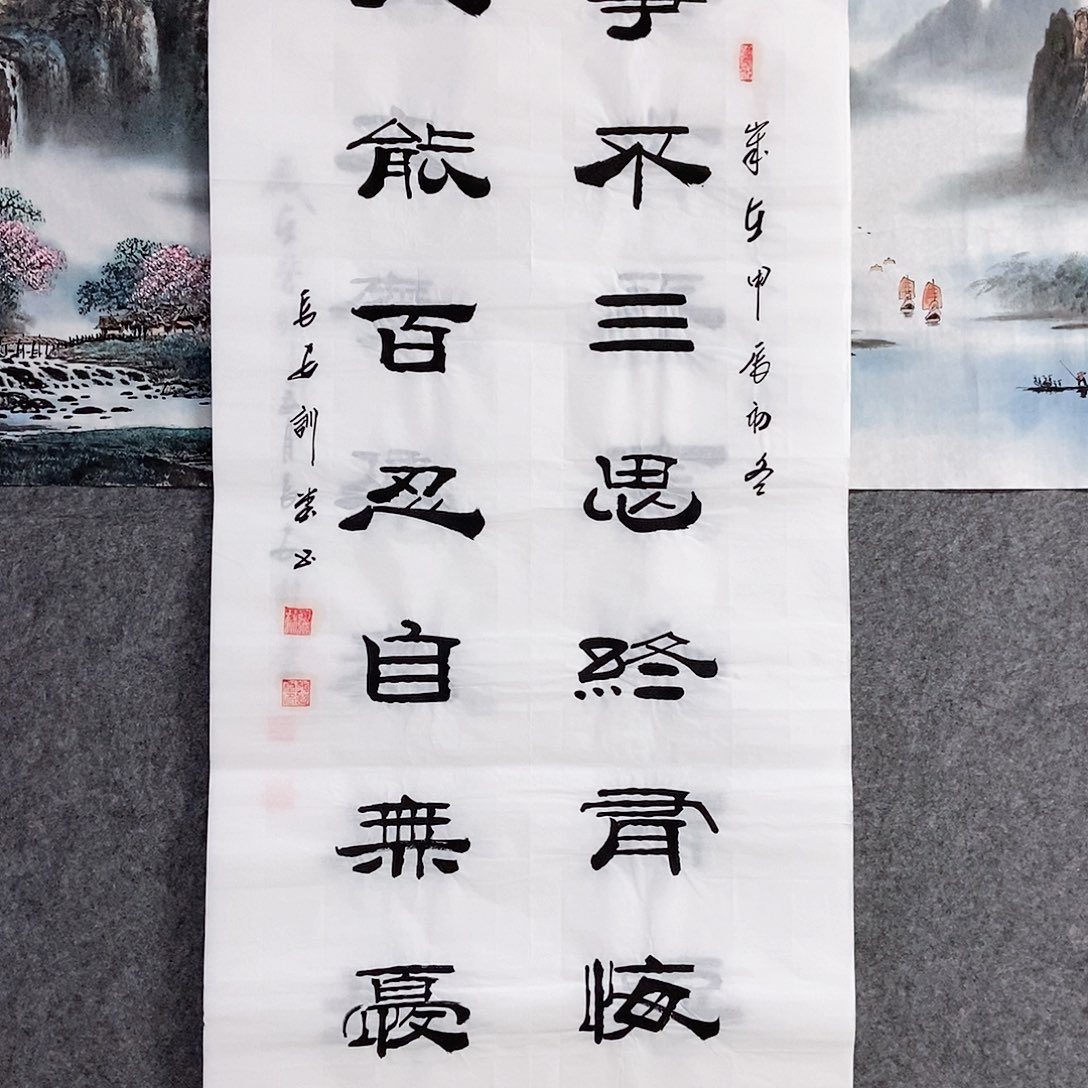 歲在甲辰初冬
事不三思終有悔
能百忍自無憂
長安訓书